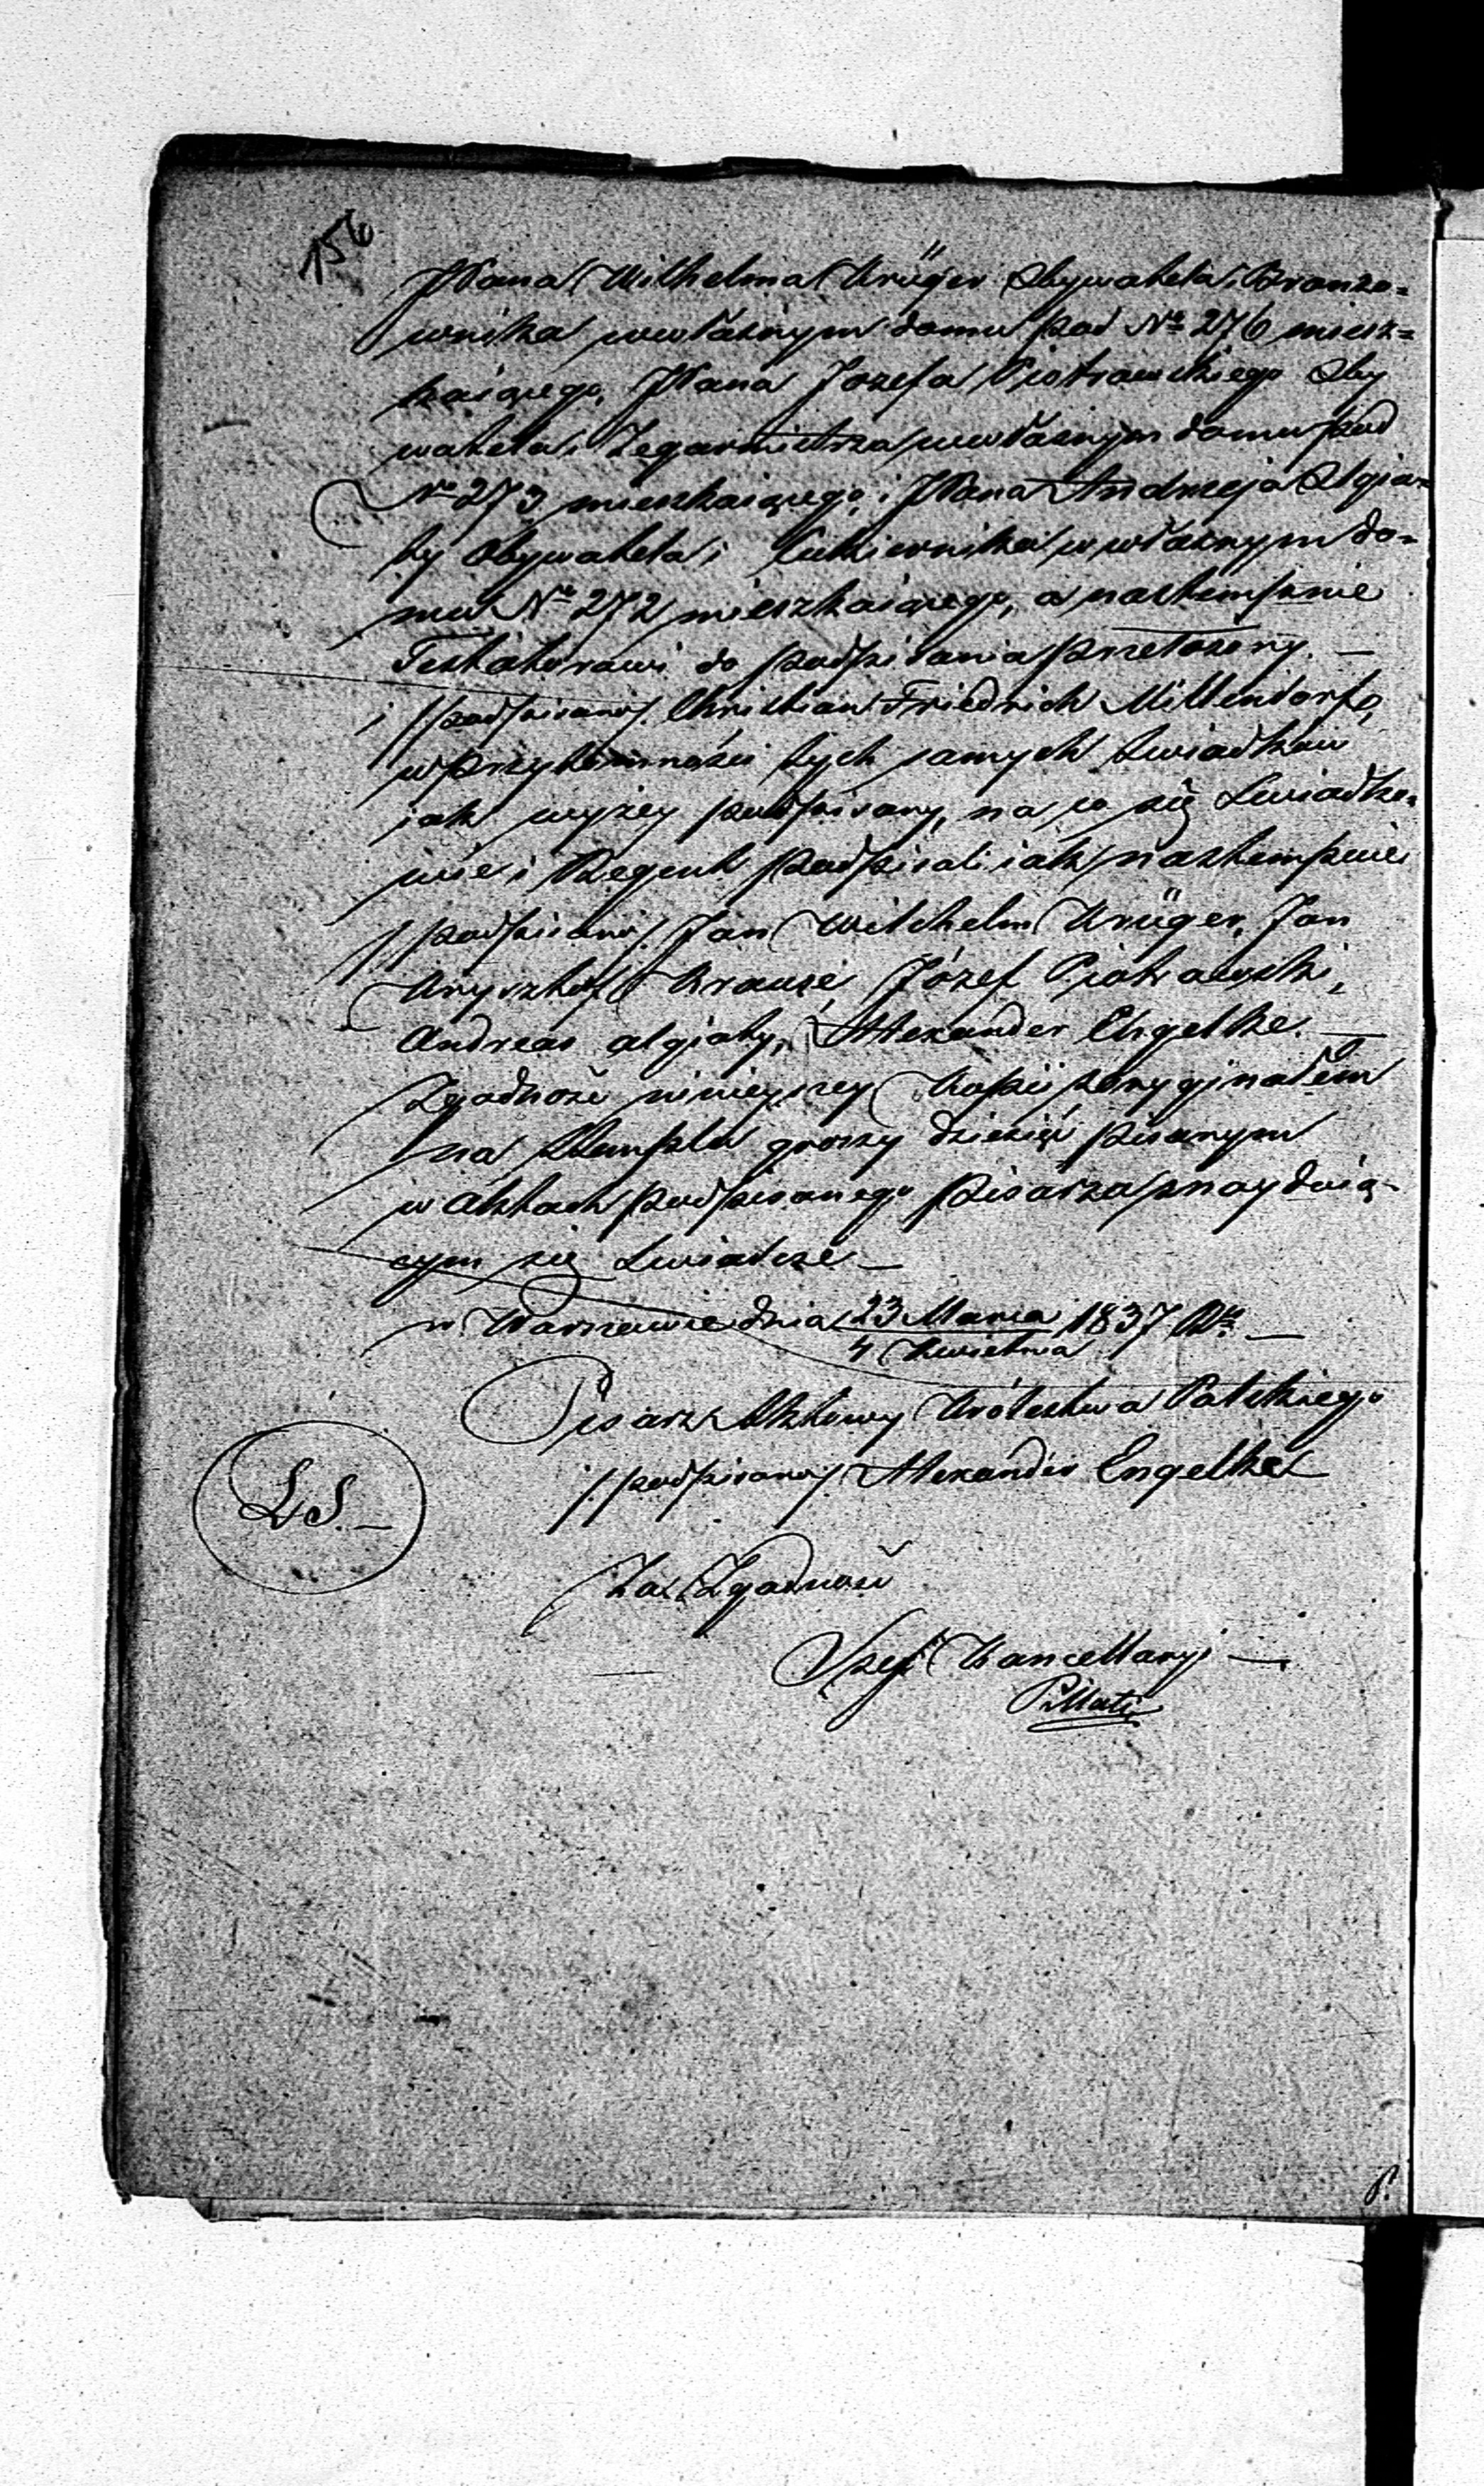 156
JPana Wilhelma Krüger Obywatela i Bronzo=
wnika w własnym domu pod No 276 miesz=
kaiącego, JPana Jozefa Piotrowskiego Oby
watela i Zegarmistrza w własnym domu pod
No 273 mieszkaiącego, i JPana Andrzeja Algia=
ty Obywatela i Cukiernika w własnym do=
mu No 272 mieszkaiącego, a nastempnie
Testatorowi do podpisania przełożony. —
/podpisano/ Christian Friedrich Mittendorf,
w przytomności tych samych Swiadków
jak wyżey podpisany, na co się Swiadko=
wie i Regent podpisali iak nastempuie
/podpisano/ Jan Wilchelm Krüger, Jan
Krysztof Krause, Józef Piotrowski,
Andreas algiaty, Alexander Engelke. —
Zgodność ninieyszey Kopii z oryginałem
na stemplu groszy dziesięć pisanym
w aktach podpisanego Pisarza znayduią-
cym się Swiadcze —
w Warszawie dnia 23 Marca / 4 Kwietnia 1837 Ru. —
Pisarz Aktowy Królestwa Polskiego
/podpisano/ Alexander Engelke
L. S. —
Za Zgodność
Szef Kancellaryi —